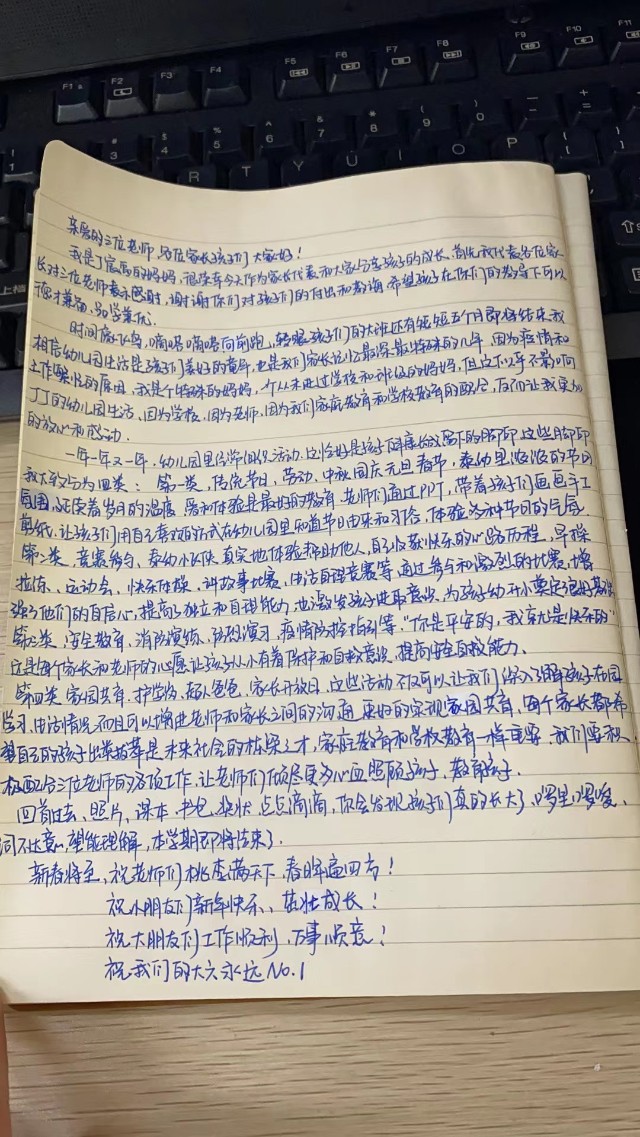 F1 F2 F3 F4 F5 F6 F7 F8 F9 F10
3 4 5 6 7 8 9 0
R T Y U I O P
上档
亲爱的三位老师,各位家长孩子们大家好!
我是丁宸禹的妈妈,很荣幸今天作为家长代表和大家分享孩子的成长。首先我代表各位家
长对三位老师表示感谢,谢谢你们对孩子们的付出和教诲,希望孩子在你们的教导下可以
德才兼备,学业
时间像飞鸟,嘀嗒嘀嗒向前跑,转眼孩子们的大班还有短短五个月即将结束,我
相信幼儿园生活是孩子们美好的童年,也是我们家长记忆最深最特殊的几年,因为疫情和
工作的原因,我是个特殊的妈妈,个从未进过学校和班级的妈妈,但这不影响
丁丁的幼儿园生活,因为学校,因为老师,因为我们家庭教育和学校教育的配合,反而让我更加
的放心和感动.
一年一年又一年,幼儿园里经常组织活动,这恰好是孩子健康长成留下的脚印,这些脚印
我大致分为四类:第一类,传统节日、劳动、中秋国庆元旦春节,泰幼里浓浓的节日
氛围,延续着岁月的温度,爱和体验是最好的教育,老师们通过PPT,带着孩子们画画手工
剪纸,让孩子们用自己喜欢的方式在幼儿园里知道节日由来和习俗,体验各种节日的气氛.
第二类,竞赛参与、泰幼小长使,真实地体验帮助他人,自己收获快乐的心路历程,早操
拉练、运动会、快乐体操、讲故事比赛、生活自理竞赛等,通过参与和激烈的比赛,增
强了他们的自信心,提高了独立和自理能力,也激发孩子进取意识,为孩子幼升小奠定了良好基础
第三类,安全教育、消防演练、防恐演习、疫情防控指引等:“你是平安的,我就是快乐的”
这是每个家长和老师的心愿,让孩子从小有着保护和自救意识,提高安全自救能力.
第四类,家园共育,护学岗、超人爸爸、家长开放日,这些活动不仅可以让我们深入了解孩子在园
学习、生活情况,而且可以增进老师和家长之间的沟通,更好的实现家园共育,每个家长都希
望自己的孩子出类拔萃是未来社会的栋梁之才,家庭教育和学校教育一样重要,我们要积
极配合三位老师的各项工作,让老师们倾尽更多心血照顾孩子,教育孩子.
回首过去、照片、课本、书包、奖状,点点滴滴,你会发现孩子们真的长大了,啰里啰嗦、
词不达意,望能理解,本学期即将结束了.
新春将至,祝老师们桃李满天下,春晖遍四方!
祝小朋友们新年快乐、茁壮成长!
祝大朋友们工作顺利,万事顺意!
祝我们的大六永远No.1